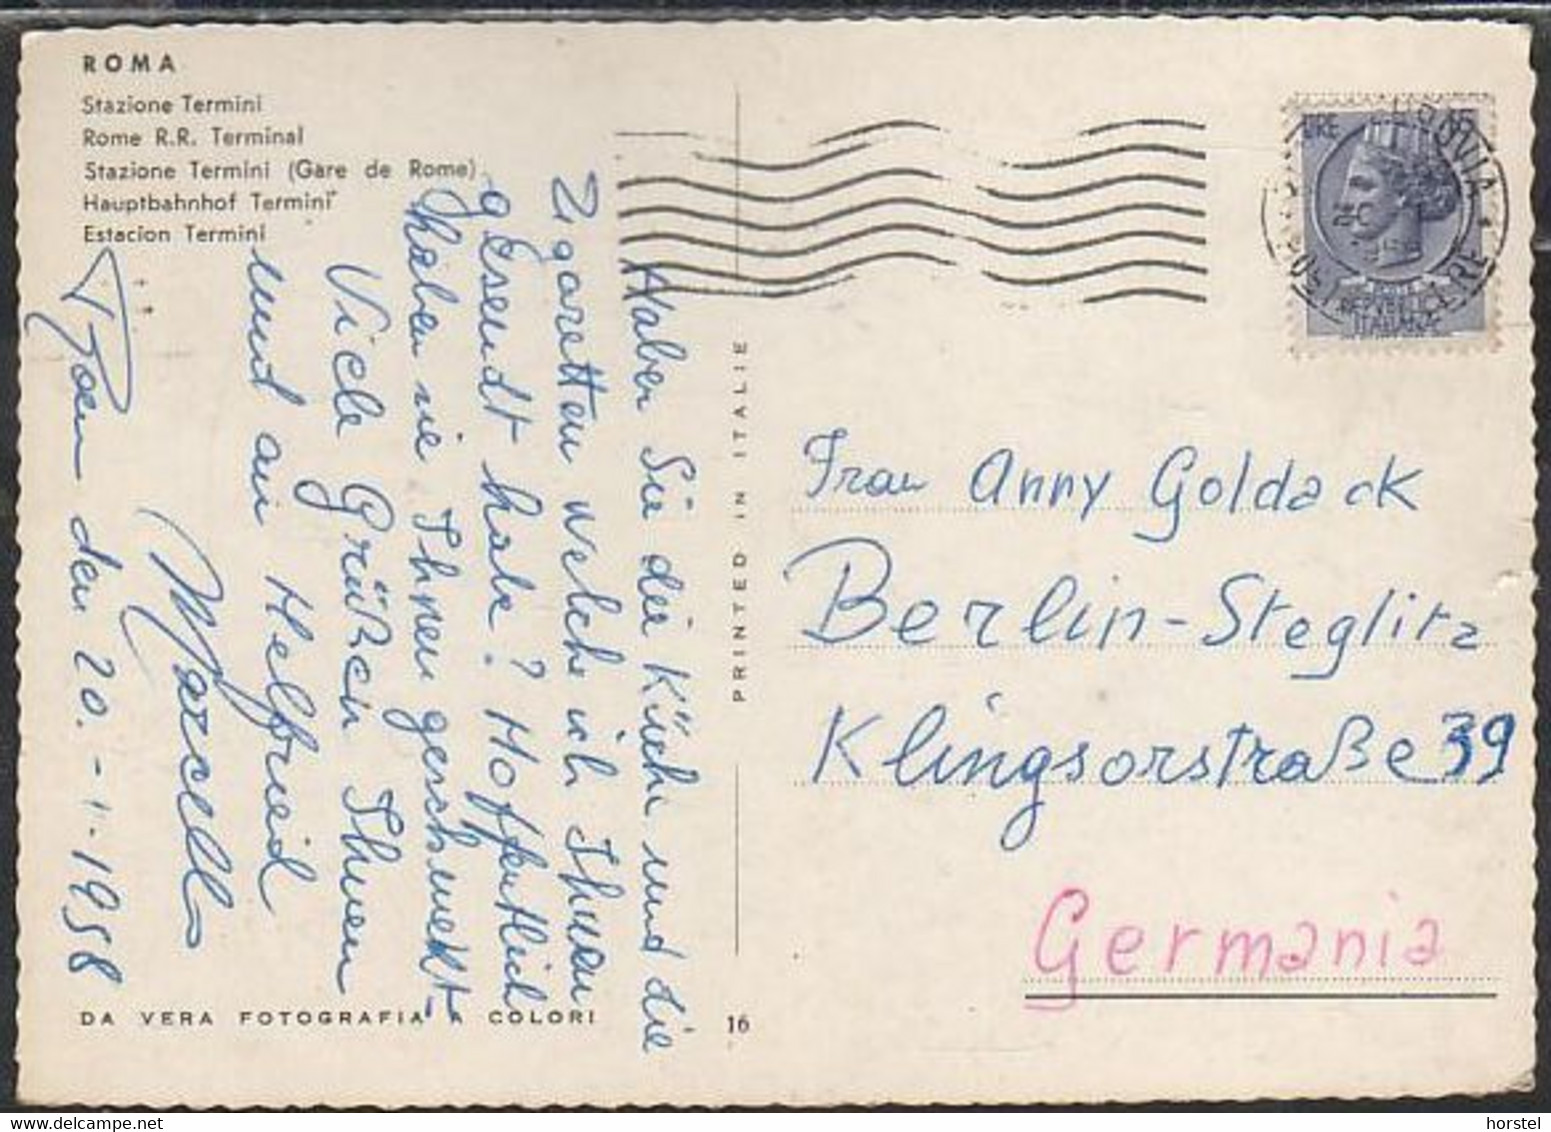 ROMA
Stazione Termini
Rome R.R. Terminal
Stazione Termini (Gare de Rome)
Hauptbahnhof Termini
Estacion Termini
Haben Sie die Küche und die
Zigaretten welche ich Ihnen
gesendt habe? Hoffentlich
haben sie Ihnen geschmekt-
Viele Grüßen Ihnen
und an Helfried
Marcello
Rom den 20.-11-1958
DA VERA FOTOGRAFIA A COLORI
16
PRINTED IN ITALIE
LIRE 15
REPVBBLICA
ITALIANA
Frau Anny Goldack
Berlin-Steglitz
Klingsorstraße 39
Germania
horstel